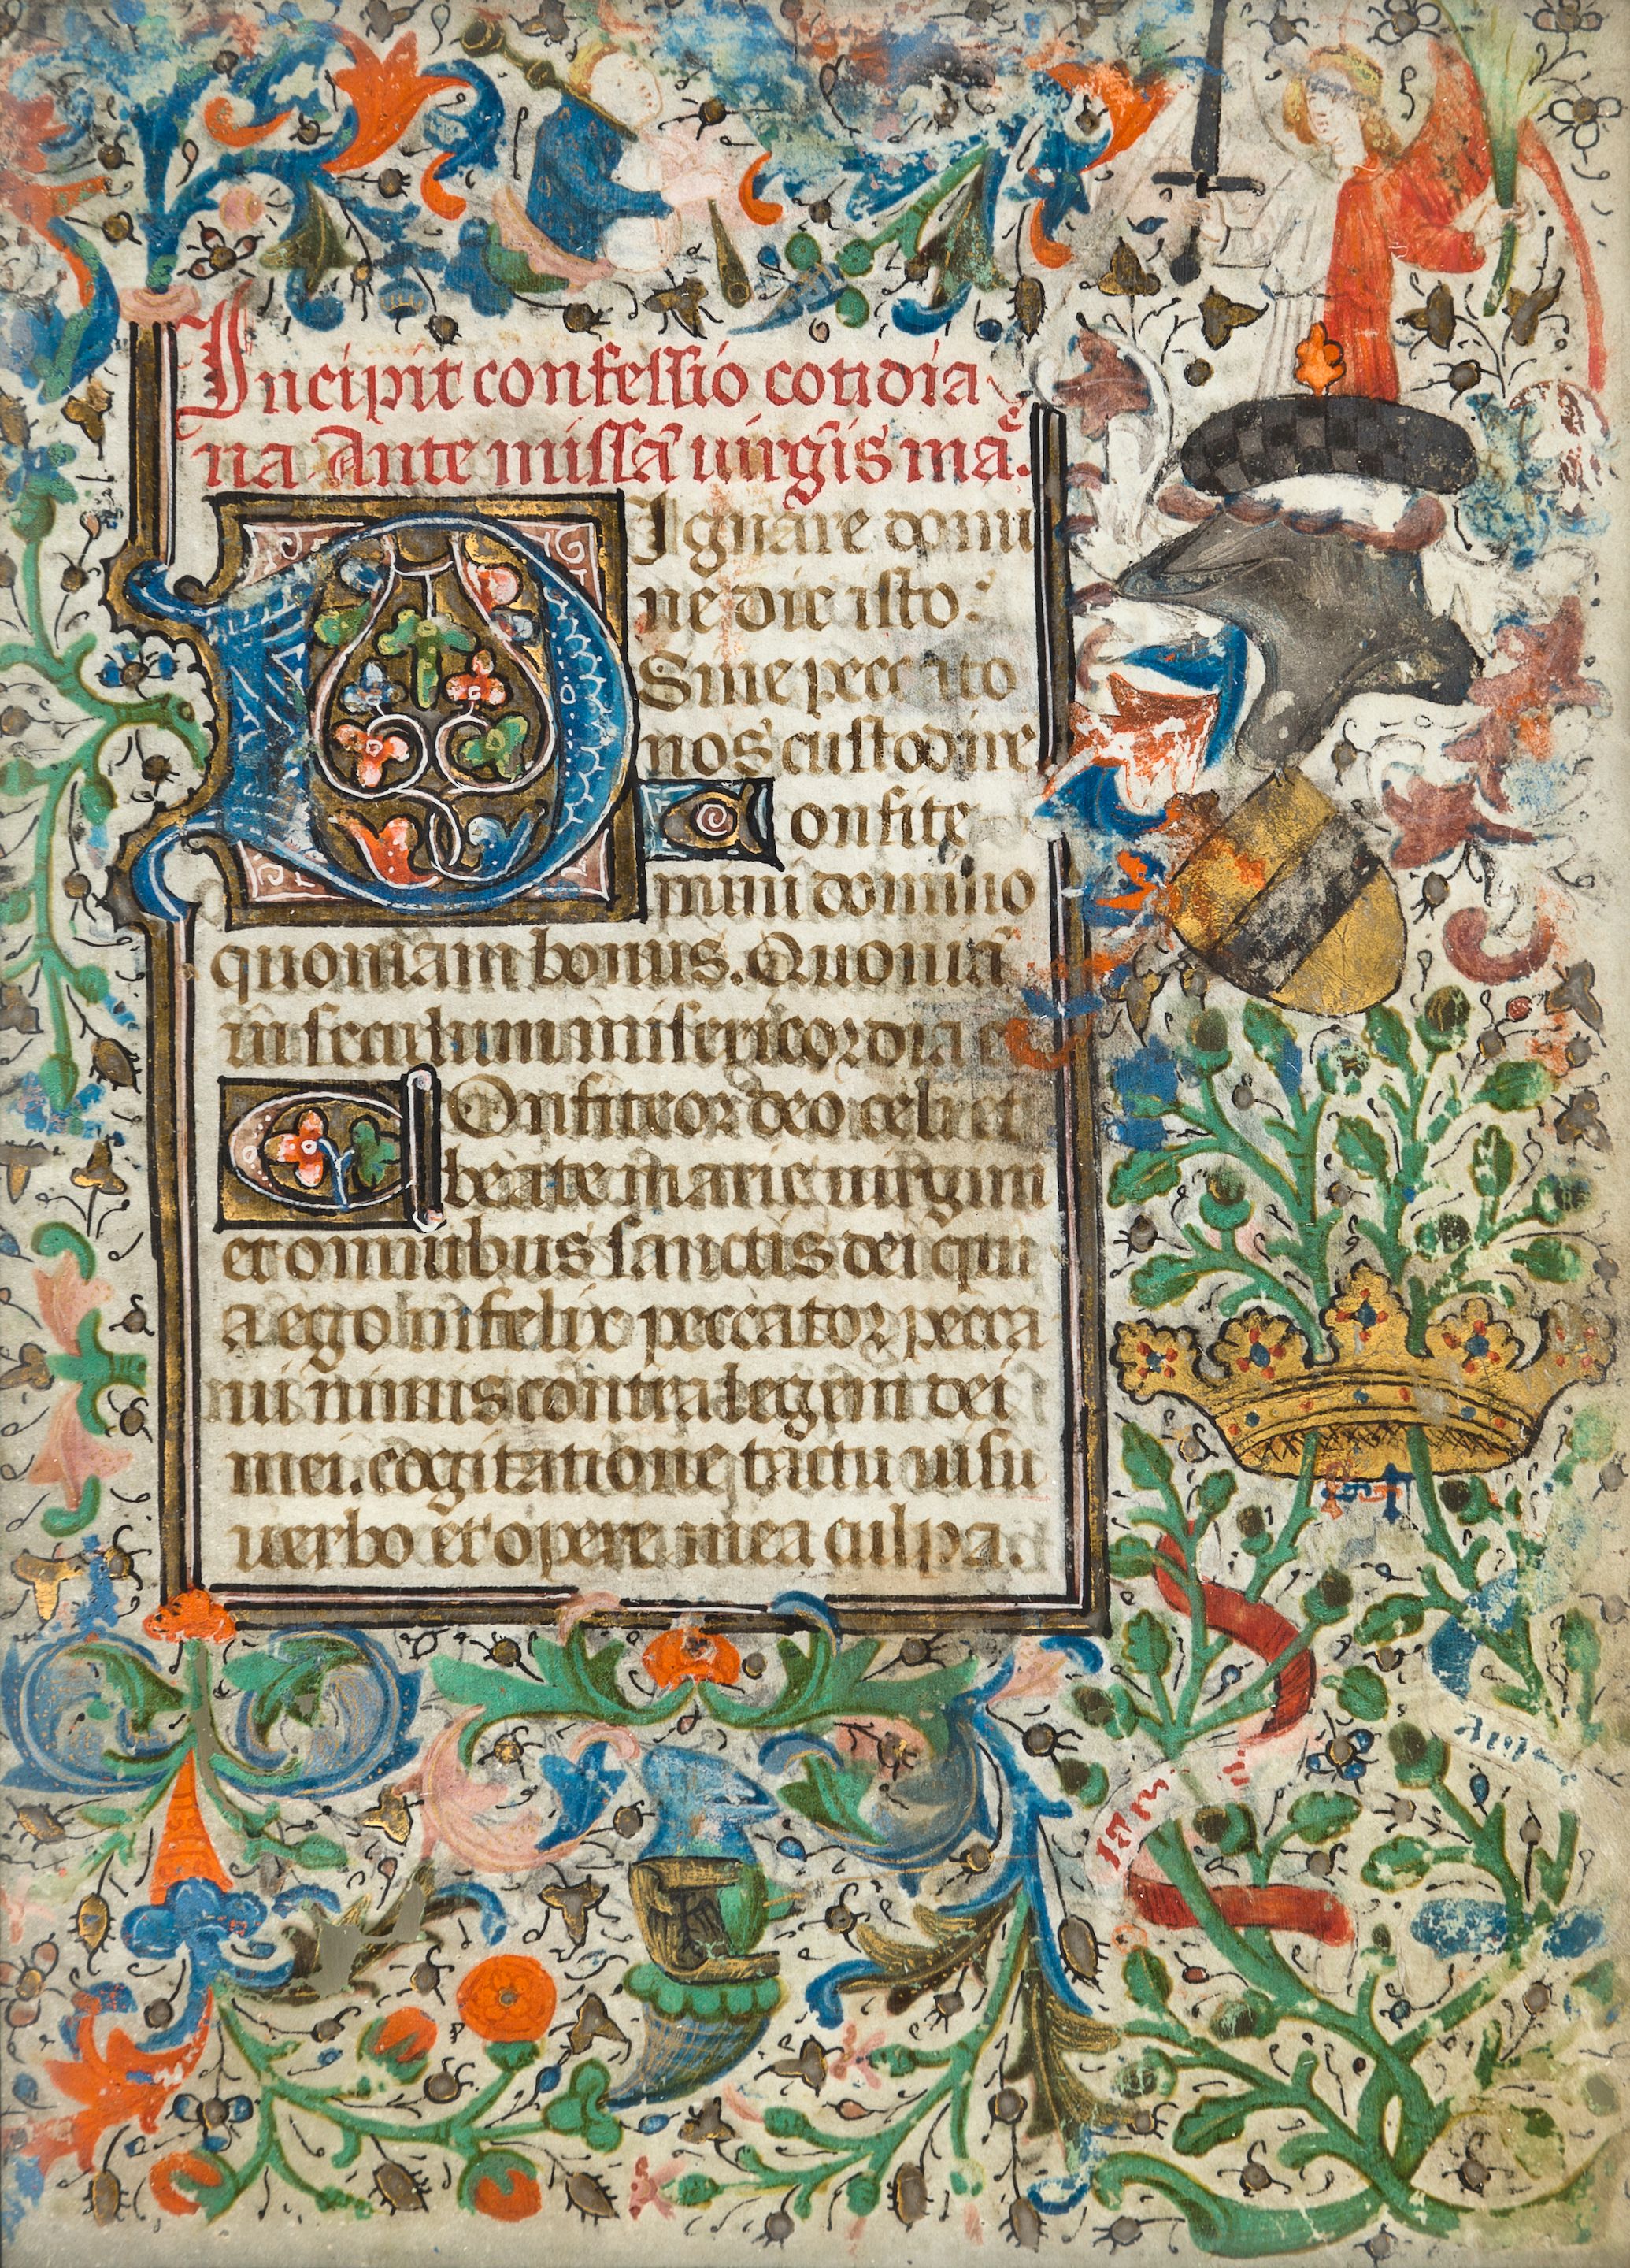 Incipit confessio cotidia
na Ante missā uirgīs ma.
Ignare domi
ne die isto:
Sine peccato
nos custodire
onfite
mini domino
quoniam bonus. Quoniā
in seculum misericordia e
Onfiteor deo celi et
beate marie uirgini
et omnibus sanctis dei qui
a ego infelix peccator pecca
ui nimis contra legem dei
mei. cogitatione tactu uisu
uerbo et opere mea culpa.